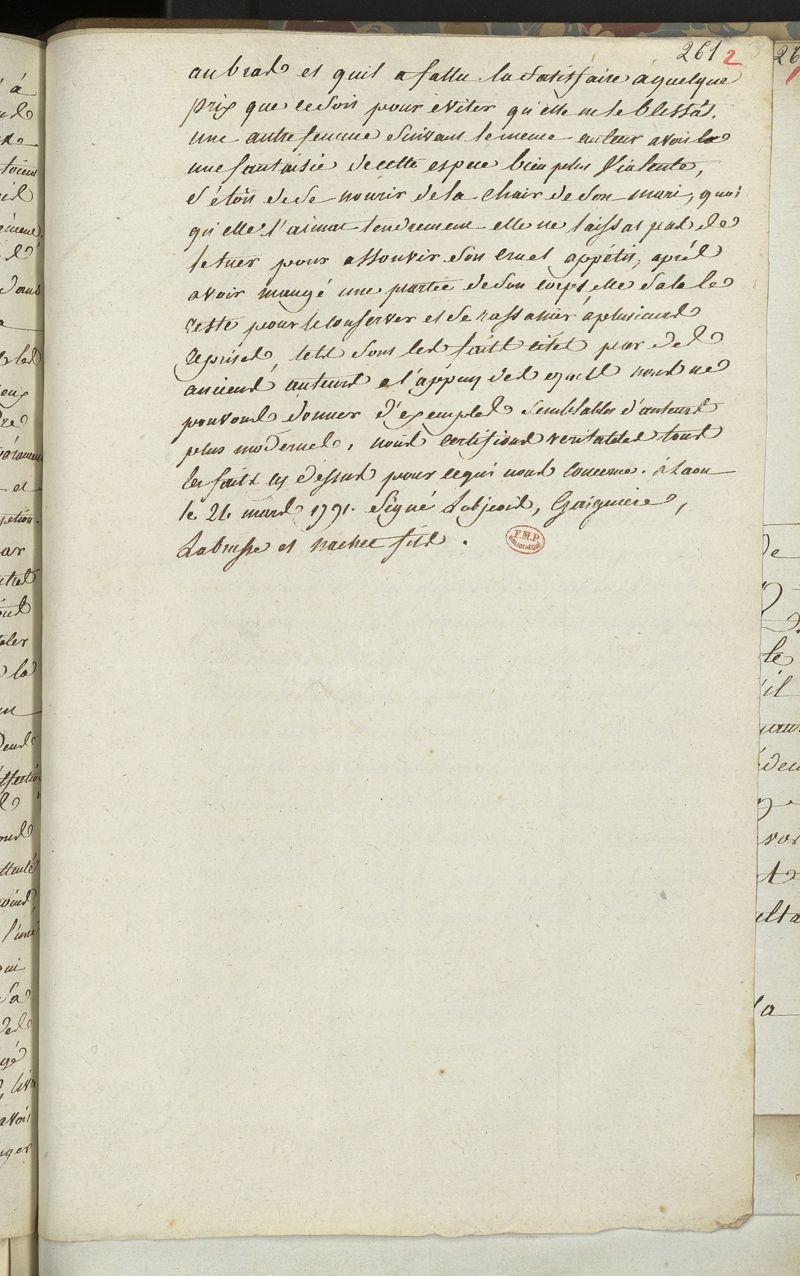 261 2
au bras et quil a fallu la satisfaire à quelque
prix que ce soit pour eviter qu'elle ne se blessât.
une autre femme suivant le meme auteur avoit
une fantaisie de cette espece bien plus violente,
s'étoit de se nourir de la chair de son mari, quoi
qu'elle l'aimat tendrement elle ne laissat pas de
le tuer pour assouvir son cruel appétit, après
avoir mangé une partie de son corps elle sala le
reste pour le conserver et se rassasier à plusieurs
reprises, tels sont les faits cités par des
anciens auteurs a l'appuy des quels nous ne
pouvons donner d'exemples semblables d'auteurs
plus modernes, nous certifions veritables tous
les faits cy dessus pour ce qui nous concerne. à Laon
le 26 mars 1791. Signé Lobjeois, Gaigniere,
Labrusse et nachet fils.
F.M.P.
BIBLIOTHEQUE